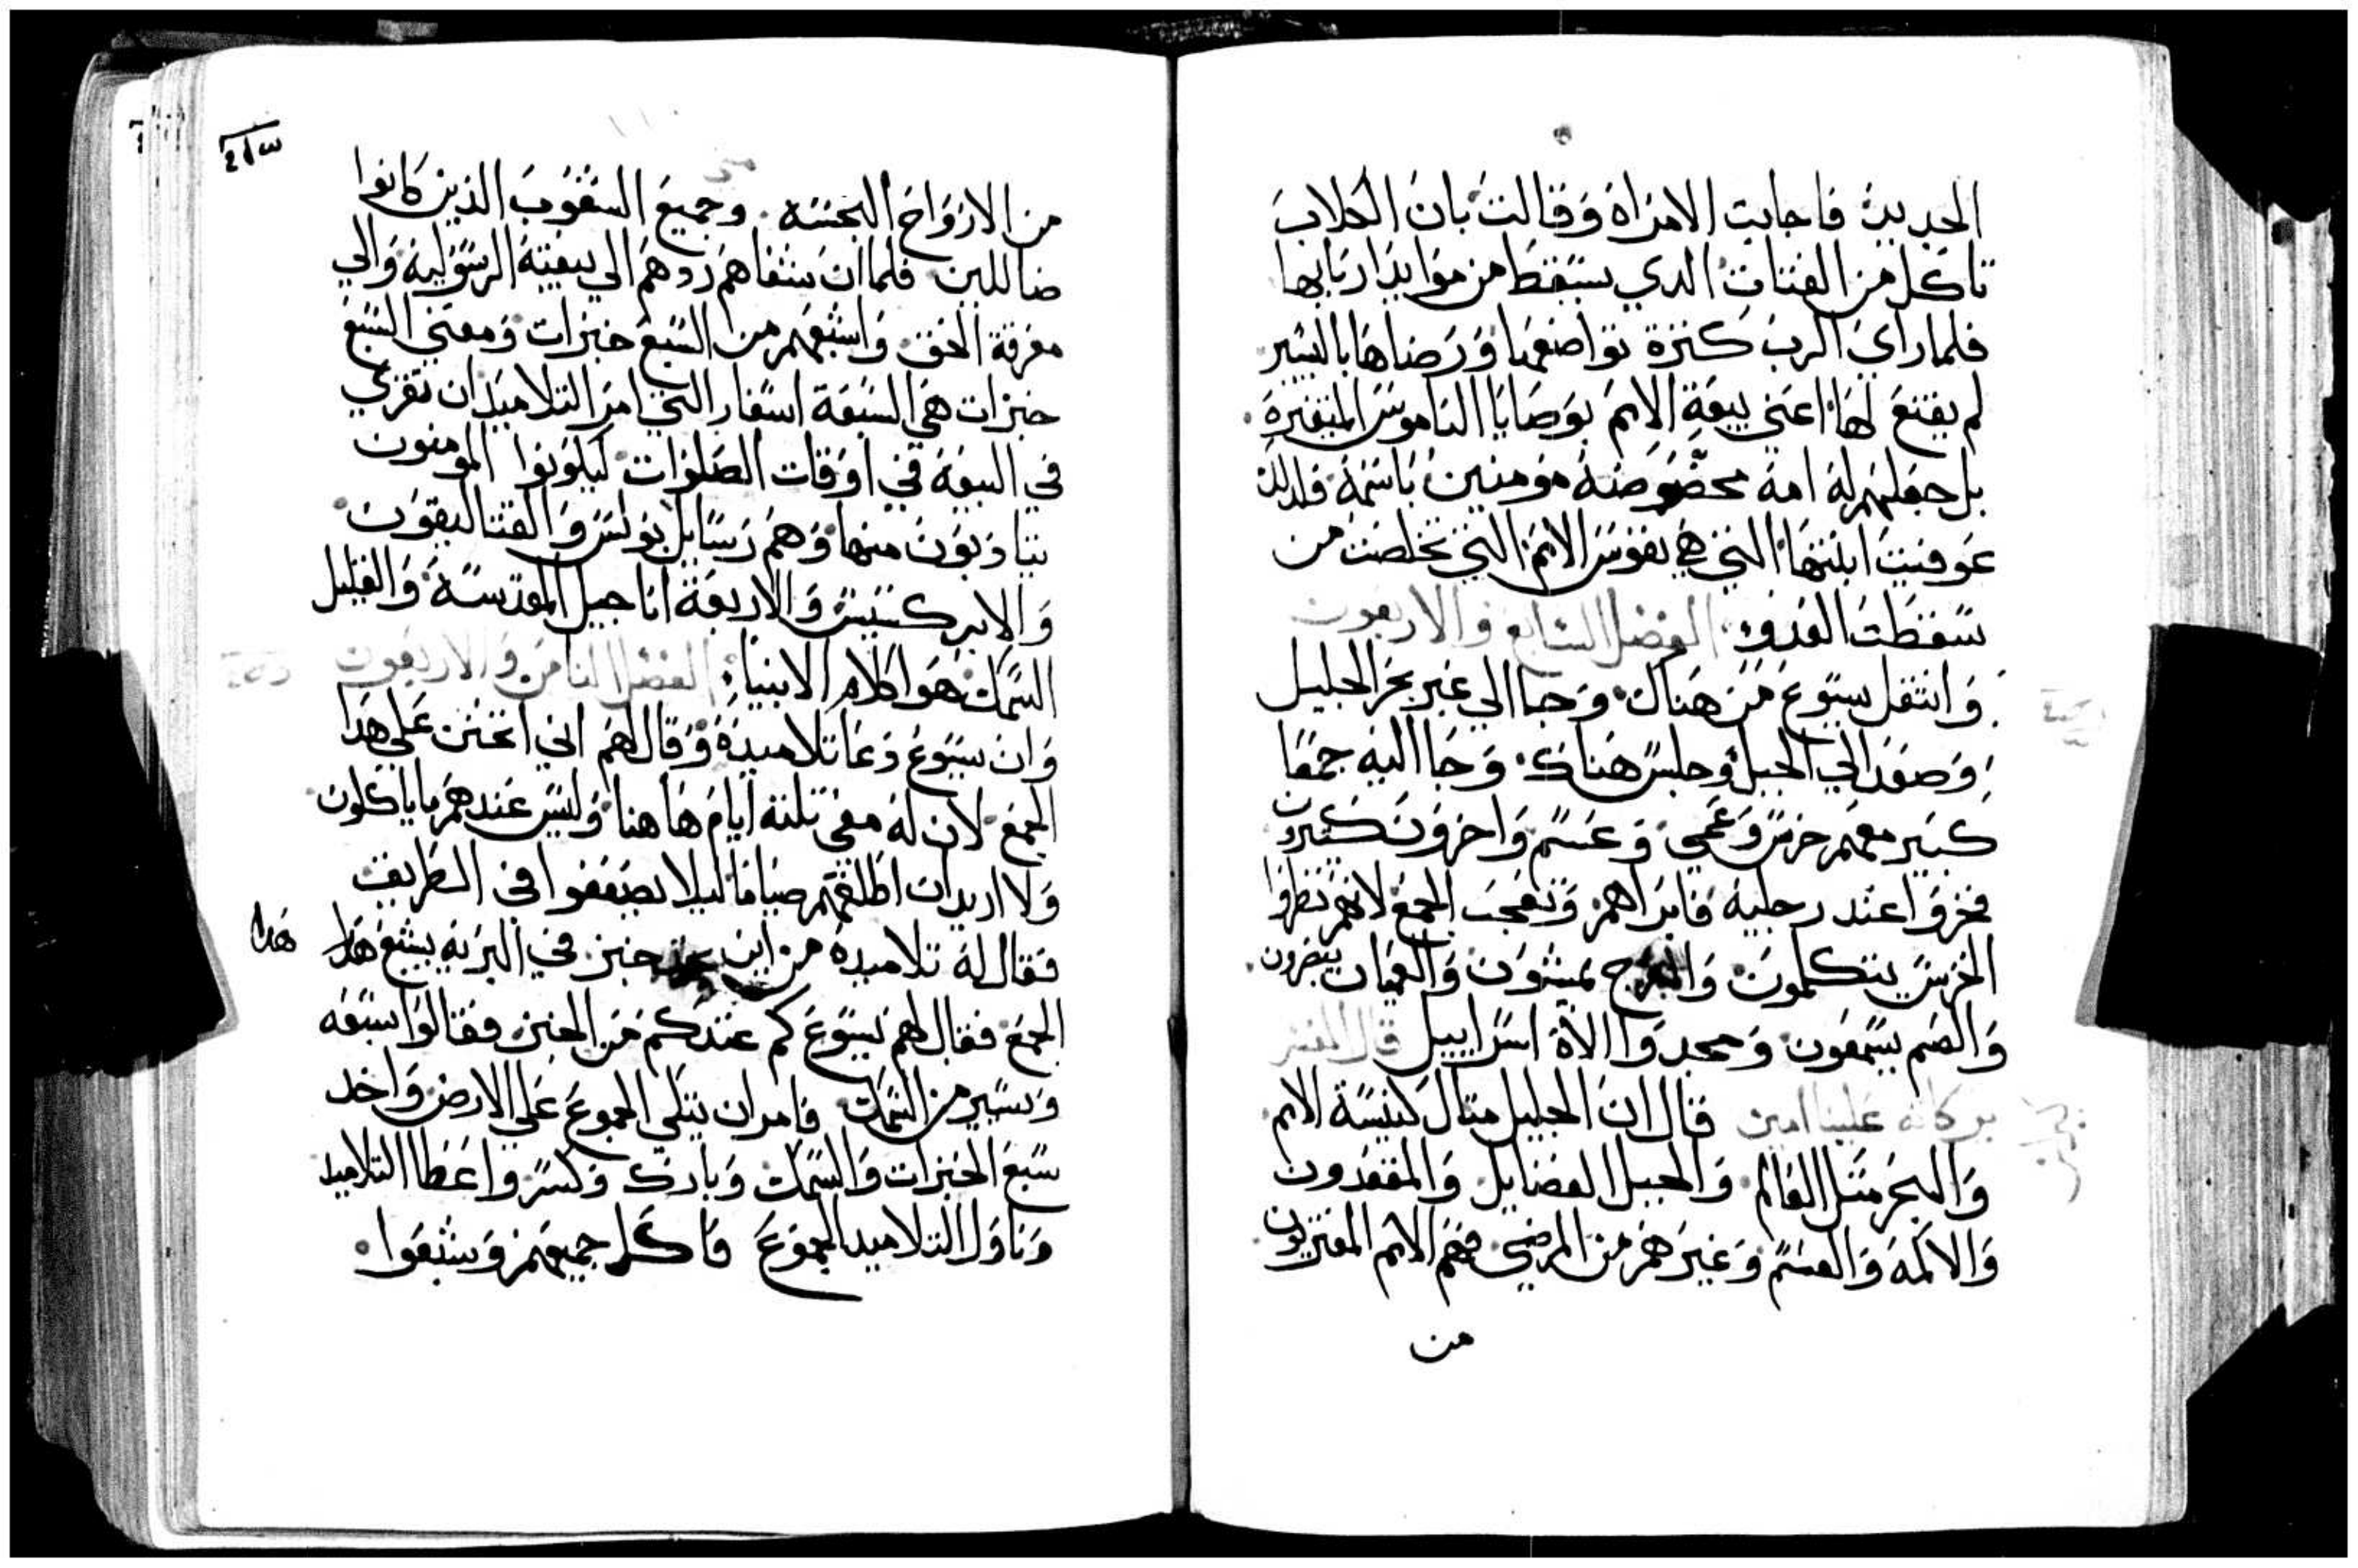 الجديدة فاجابت الامراه وقالت بان الكلاب
تاكل من الفتات الدي يسقط من موايد اربابها
فلما راي الرب كترة تواضعها ورضاها باليسير
لم يقنع لها اعني بيعة الامم بوصايا الناموس
بل جعلهم له امة مخصوصه مومنين باسمه فلدلك
عوفيت ابنتها التي هي نفوس الامم التي تخلصت من
سقطت العدو الفصل السابع والاربعون
وانتقل يسوع من هناك وجا الي عبر بحر الجليل
وصعد الي الجبل وجلس هناك وجا اليه جمعا
كبير معهم خرس وعمي وعسم واخرون كتيرون
فخروا عند رجليه فابراهم وتعجب الجمع لانهم نظروا
الخرس يتكلمون والعرج يمشون والعميان ينضرون
والصم يسمعون ومجدوا الاه اسراييل قال المفسر
بركاته علينا امين قال ان الجليل متال كنيسة الامم
والبحر متل العالم والجبل الفضايل والمقعدون
والاكمه والعسم وغيرهم من المرضي فهم الامم
من
من الارواح النجسه وجميع الشعوب الذين كانوا
ضاللين فلما ان شفاهم ردهم الي بيعته الرسوليه والي
معرفة الحق واشبعهم من السبع خبزات ومعني السبع
خبزات هي السبعة اسفار التي امر التلاميد ان تقري
في البيعة في اوقات الصلوات ليكونوا المومنون
يتادبون منها وهم رسايل بولس والقتاليقون
والابركسيس والاربعة اناجيل المقدسة والقليل
السمك هو كلام الانبيا الفصل التامن والاربعون
وان يسوع دعا تلاميده وقال لهم اني اتحنن علي هدا
الجمع لان له معي تلتة ايام هاهنا وليس عندهم ما ياكلون
ولا اريد ان اطلقهم صياما ليلا يضعفوا في الطريق
فقال له تلاميده من اين خبز في البريه يشبع هدا هدا
الجمع فقال لهم يسوع كم عندكم من الخبز فقالوا سبعه
ويسير من السمك فامر ان يتكي الجموع علي الارض واخد
سبع الخبزات والسمك وبارك وكسر واعطا التلاميد
وناول التلاميد الجموع فاكل جميعهم وشبعوا